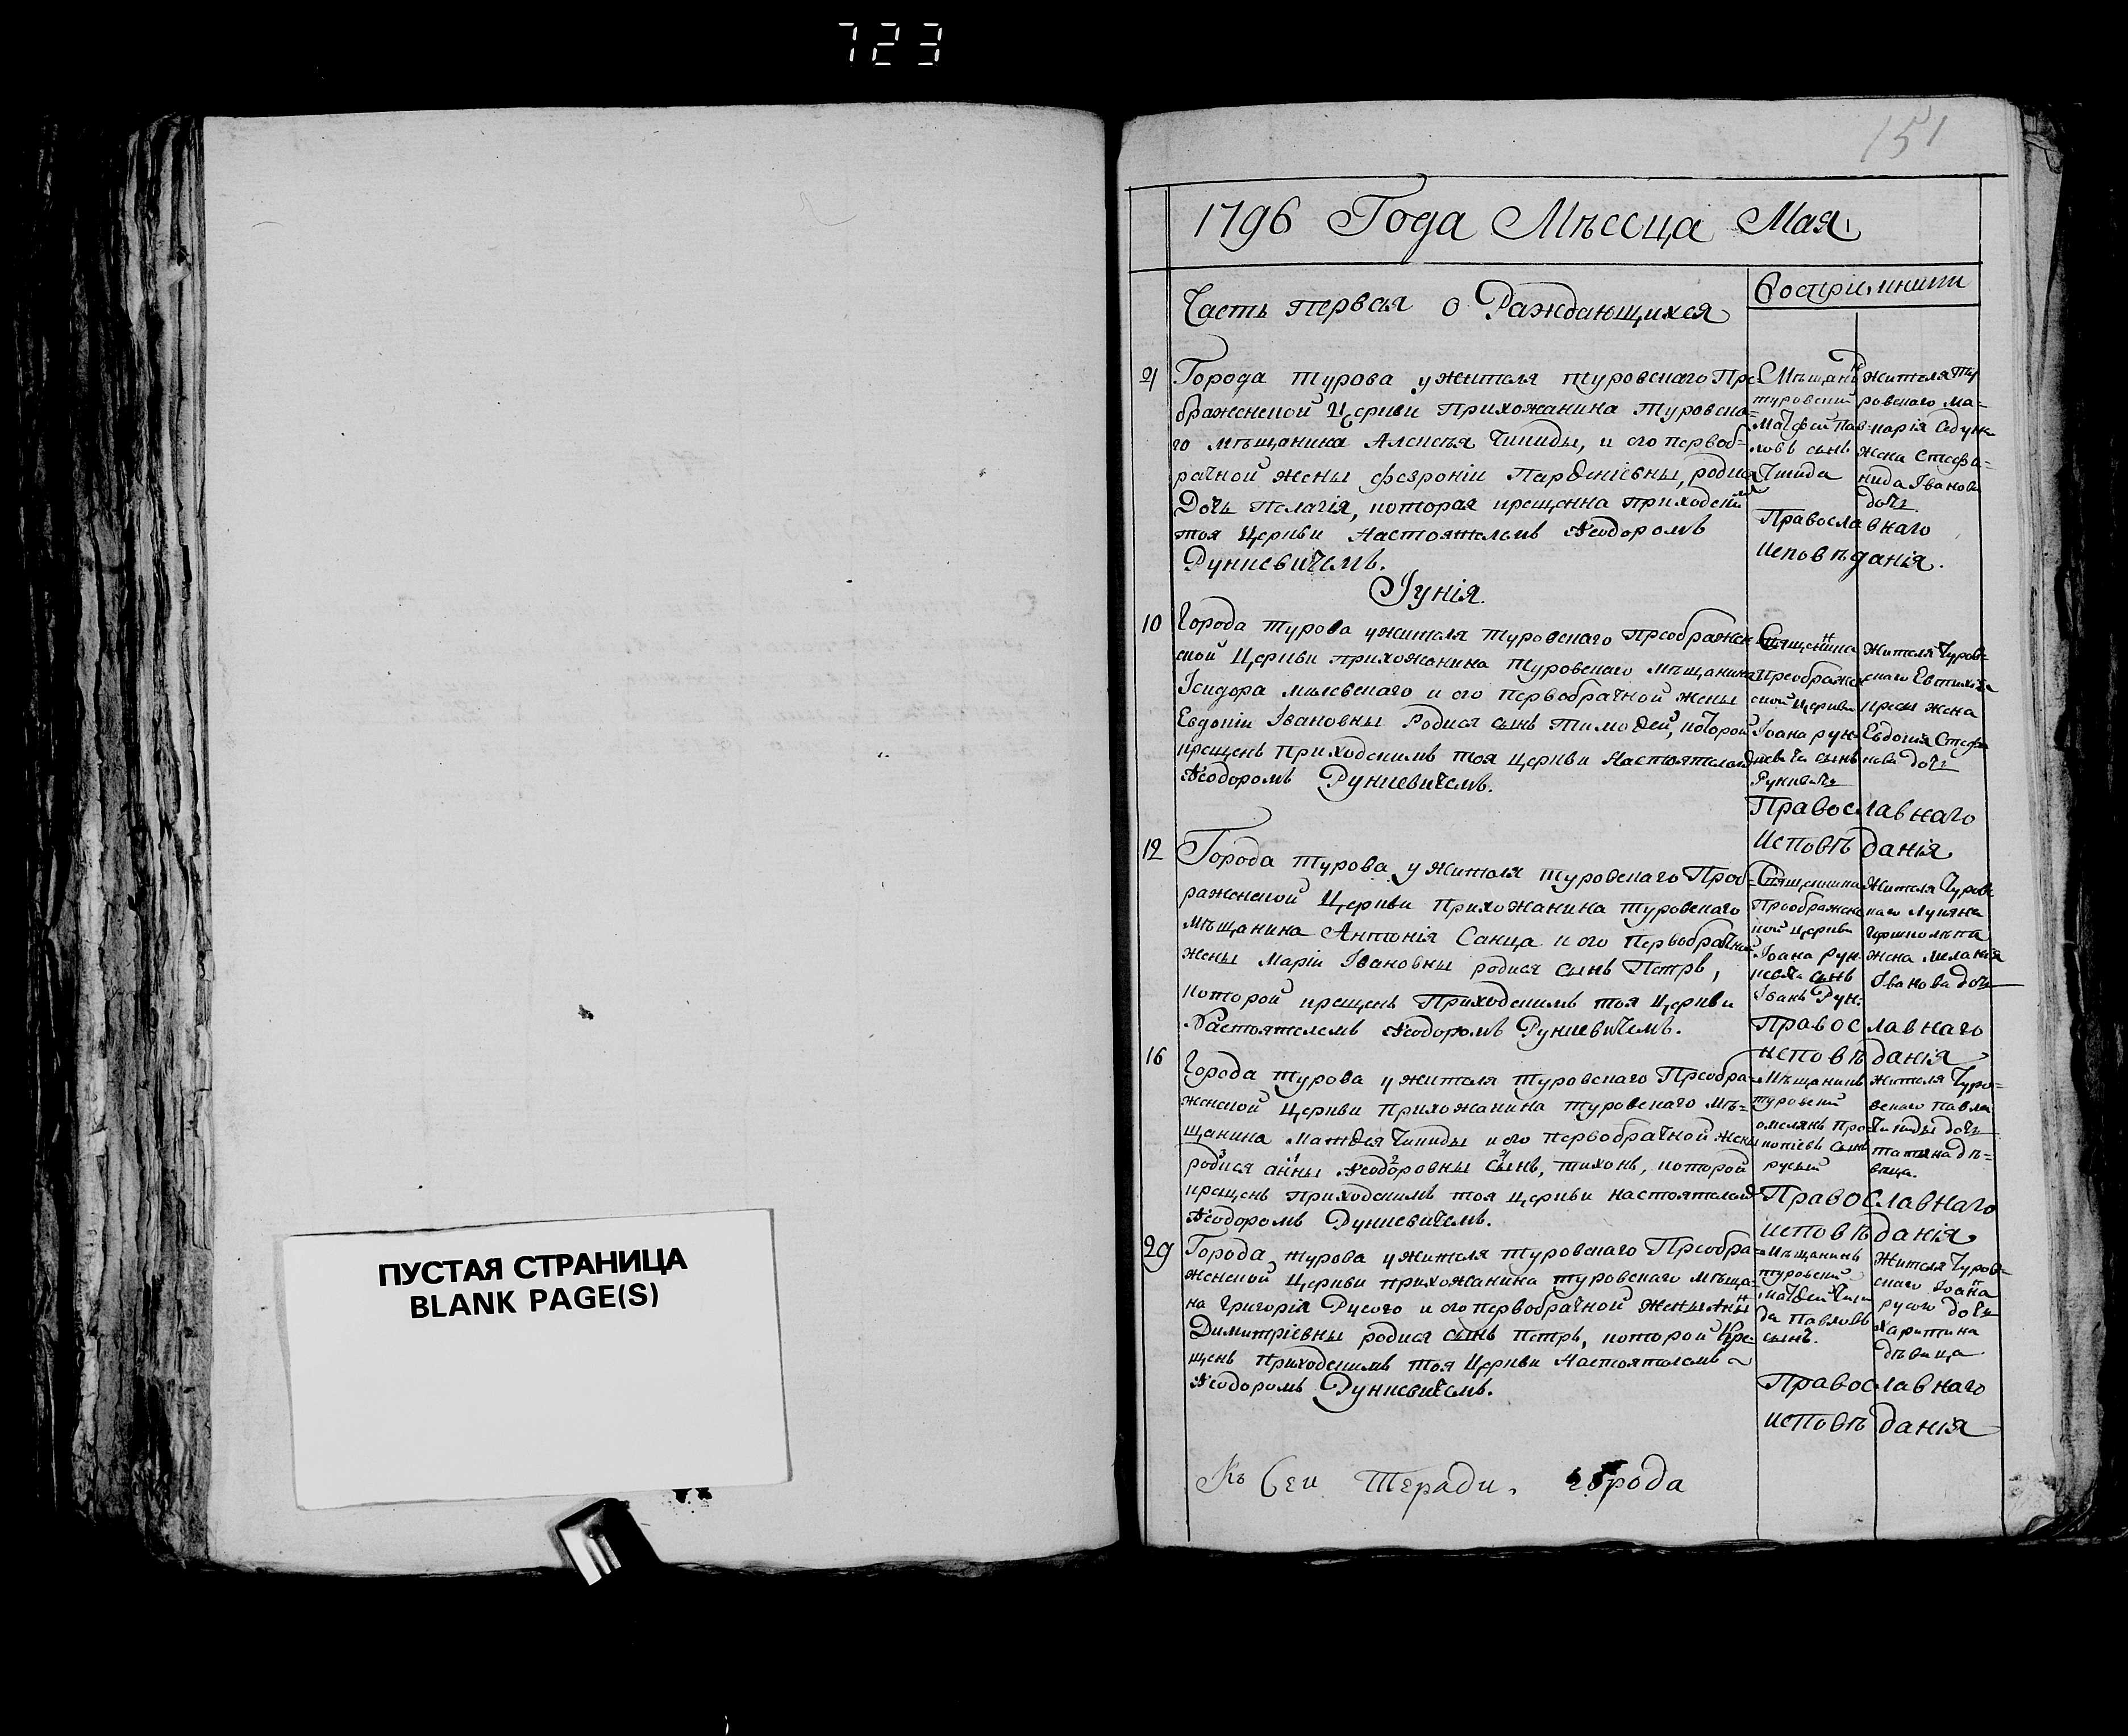 723
151
1796 Года Мѣсеца Мая
Часть первая о Раждающихся
Восприимники
21
Города турова у жителя туровскаго Пре-
браженской Церкви Прихожанина Туровска-
го мѣщанина Алексѣя Чипиды, и его первоб-
рачной жены февроніи Парѳеніевны, родися
Дочь Пелагія, которая крещенна приходским
тоя Церкви Настоятелемъ Ѳеодоромъ
Рункевичемъ.
Мѣщанинъ
туровский
Матфей Пав-
ловъ сынъ
Чипида
жителя ту
ровскаго ма-
карія
жена Стефа-
нида Іванова
дочь
Православнаго
исповѣданія.
Іунія.
10
Города турова у жителя туровскаго преображен
ской Церкви прихожанина туровскаго мѣщанина
Ісидора милевскаго и его первобрачной жены
Евдокіи Івановны Родися сынъ тимоѳей, которой
крещенъ приходскимъ тоя церкви Настоятелем
Ѳеодоромъ Рункевичемъ.
Священника
Преображен
ской церкви
Іоана рун-
кевича сынъ
жителя Туров-
скаго Евтихія
жена
Евдокия Стефа
нова дочь
Православнаго
исповѣданія
12
Города турова у жителя туровскаго Преоб-
раженской Церкви прихожанина туровскаго
мѣщанина Антонія Санца и его Первобрачной
жены Маріи Івановны родися сынъ Петръ,
которой крещенъ Приходскимъ тоя Церкви
Настоятелемъ Ѳеодоромъ Рункевичемъ.
Священника
Преображенс
кой церкви
Іоана Рун-
кевича сынъ
Іванъ Рун:
жителя Туровс
каго Лукяна
жена мелания
Іванова дочь
Православнаго
исповѣданія
16
Города турова у жителя туровскаго Преобра-
женской Церкви прихожанина туровскаго мѣ-
щанина Матѳея Чипиды и его первобрачной жены
родися анны Ѳеодоровны сынъ, тихонъ, которой
крещенъ приходскимъ тоя церкви настоятелем
Ѳеодоромъ Рункевичемъ.
Мѣщанинъ
туровский
омелянъ Про-
копіевъ сынъ
русый
жителя Туро-
вскаго павла
Чипиды дочь
татияна дѣ-
вица.
Православнаго
исповѣданія
29
Города турова у жителя туровскаго Преобра-
женской Церкви прихожанина туровскаго мѣща-
на Григорія Русого и его первобрачной жены Анны
Димитріевны родися сынъ петръ, которой Кре-
щенъ приходскимъ тоя Церкви Настоятелемъ
Ѳеодоромъ Рункевичемъ.
Мѣщанинъ
туровский
матѳей Чипи
да Павловъ
сынъ.
Жителя Туров-
скаго Іоана
русого дочь
харитина
дѣвица
Православнаго
исповѣданія
Къ Сеи Тетради. города
ПУСТАЯ СТРАНИЦА
BLANK PAGE(S)